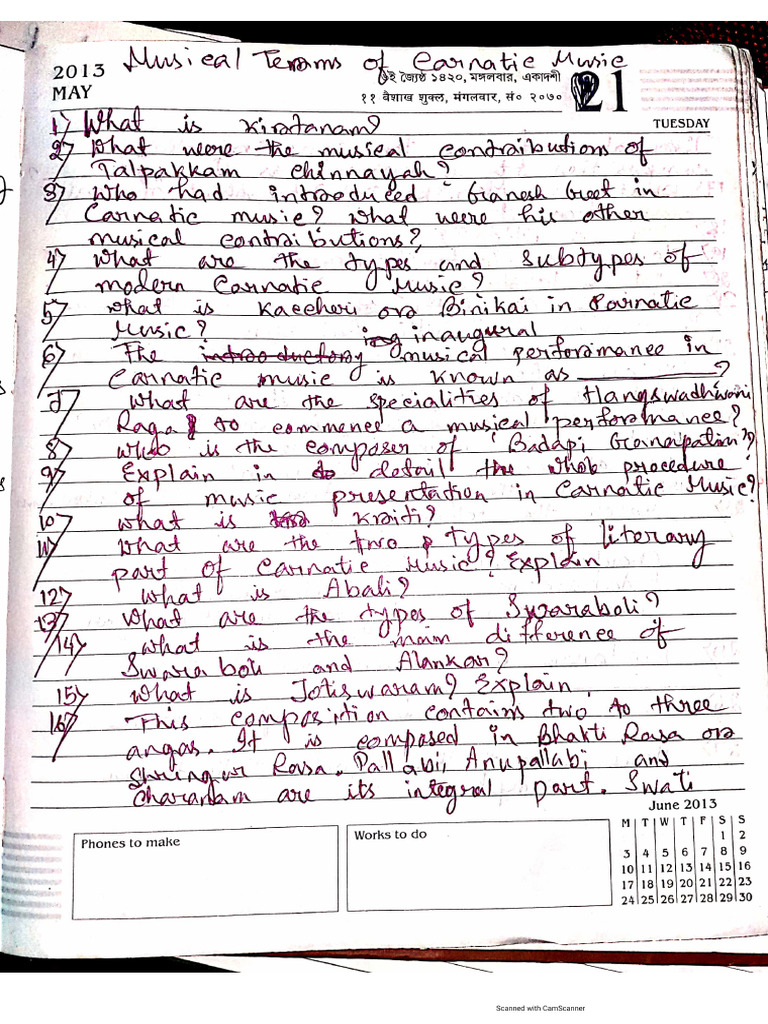 Musical Terms of Carnatic Music
2013
MAY
৭ই জ্যৈষ্ঠ ১৪২০, মঙ্গলবার, একাদশী
११ वैशाख शुक्ल, मंगलवार, सं० २०७०
21
TUESDAY
1) What is kiratanam?
2) What were the musical contributions of
Talpakkam chinnayah?
3) Who had introduced Ganesh Geet in
Carnatic music? What were his other
musical contributions?
4) What are the types and subtypes of
modern Carnatic Music?
5) What is Kaecheri or Binikai in Carnatic
Music?
inaugural
6) The introductory musical performance in
Carnatic music is known as ________?
7) What are the specialities of Hangswadhwani
Raga to commence a musical performance?
8) Who is the composer of 'Badapi Ganapatim'?
9) Explain in detail the whole procedure
of music presentation in Carnatic Music?
10) What is Kriti?
11) What are the two types of literary
part of Carnatic Music? Explain
12) What is Abali?
13) What are the types of Swaraboli?
14) What is the main difference of
Swaraboli and Alankar?
15) What is Jotiswaram? Explain
16) This composition contains two to three
angas. It is composed in Bhakti Rasa or
Shringur Rasa. Pallabi, Anupallabi and
Charanam are its integral part. Swati
Phones to make
Works to do
June 2013
M T W T F S S
1 2
3 4 5 6 7 8 9
10 11 12 13 14 15 16
17 18 19 20 21 22 23
24 25 26 27 28 29 30
Scanned with CamScanner